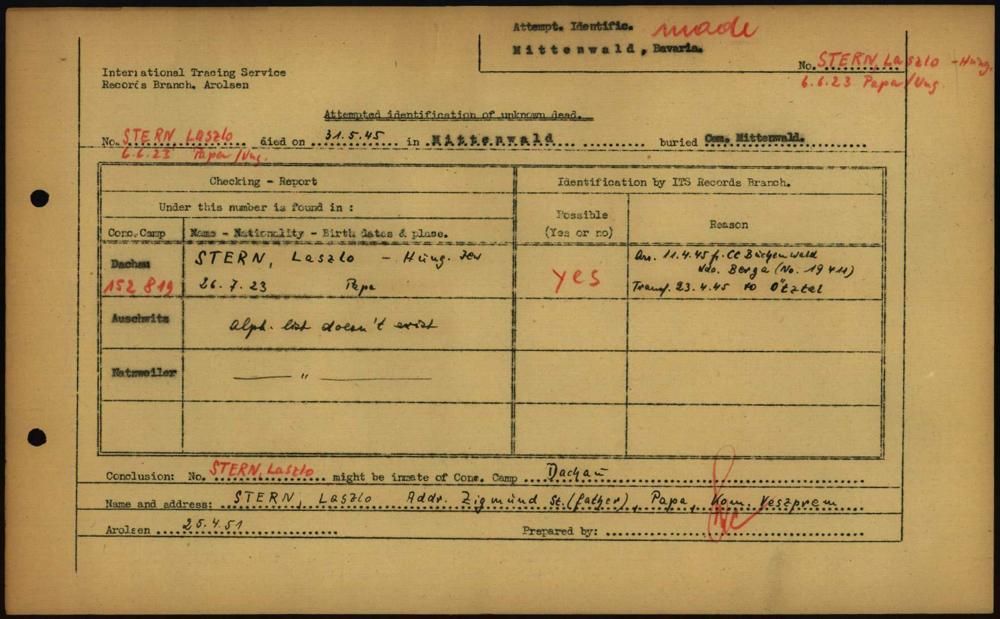 Attempt. Identific. made
Mittenwald, Bavaria.
No. STERN, Laszlo - Hung.
6.6.23 Papa/Ung.
International Tracing Service
Records Branch, Arolsen
Attempted identification of unknown dead.
No. STERN Laszlo died on 31.5.45 in Mittenwald buried Com. Mittenwald.
6.6.23 Papa/Ung.
Checking - Report
Identification by ITS Records Branch.
Under this number is found in :
Possible
(Yes or no)
Reason
Conc.Camp
Name - Nationality - Birth dates & place.
Dachau
STERN, Laszlo - Hung. Jew
yes
Arr. 11.4.45 fr. CC Buchenwald
Kdo. Berga (No. 19411)
152 819
26.7.23 Papa
Transf. 23.4.45 to Ötztal
Auschwitz
Alph. list doesn't exist
Natzweiler
— " —
Conclusion: No. STERN, Laszlo might be inmate of Conc. Camp Dachau
Name and address: STERN, Laszlo Addr. Zigmund St. (father), Papa, Kom. Veszprem
Arolsen 25.4.51
Prepared by: